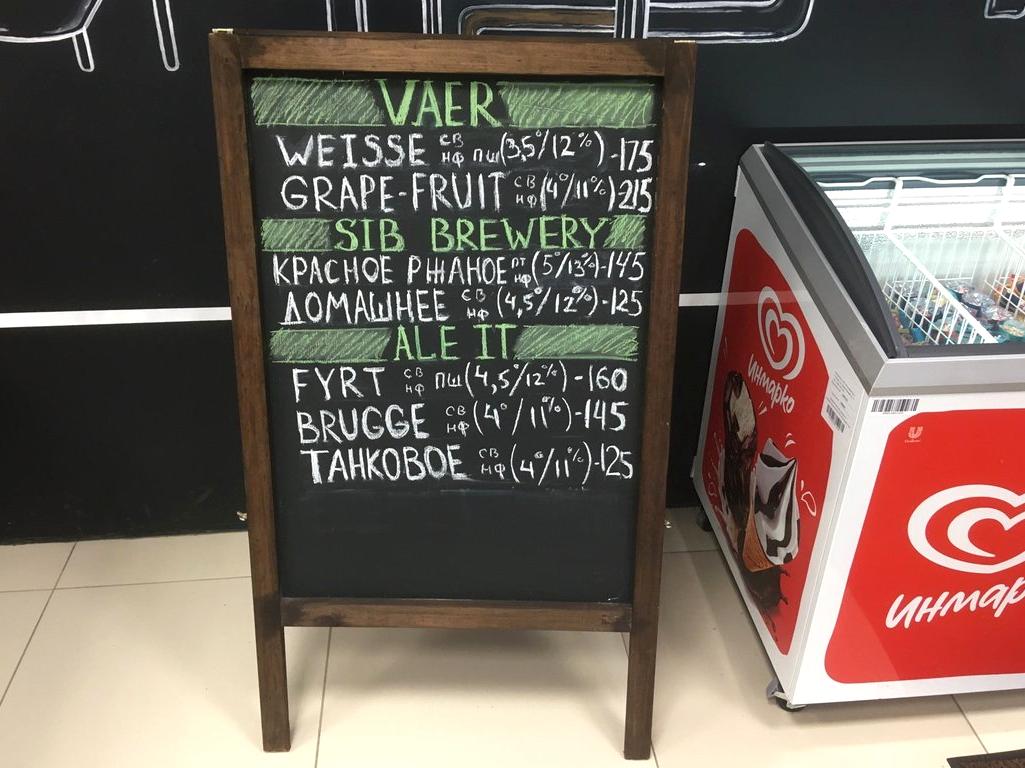 VAER
WEISSE СВ НФ ПШ (3,5°/12%) -175
GRAPE-FRUIT СВ НФ (4°/11%) -215
SIB BREWERY
КРАСНОЕ РЖАНОЕ ПТ НФ (5°/13%) -145
ДОМАШНЕЕ СВ НФ (4,5°/12%) -125
ALE IT
FYRT СВ НФ ПШ (4,5°/12%) -160
BRUGGE СВ НФ (4°/11%) -145
ТАНКОВОЕ СВ НФ (4°/11%) -125
Инмарко
Инмар